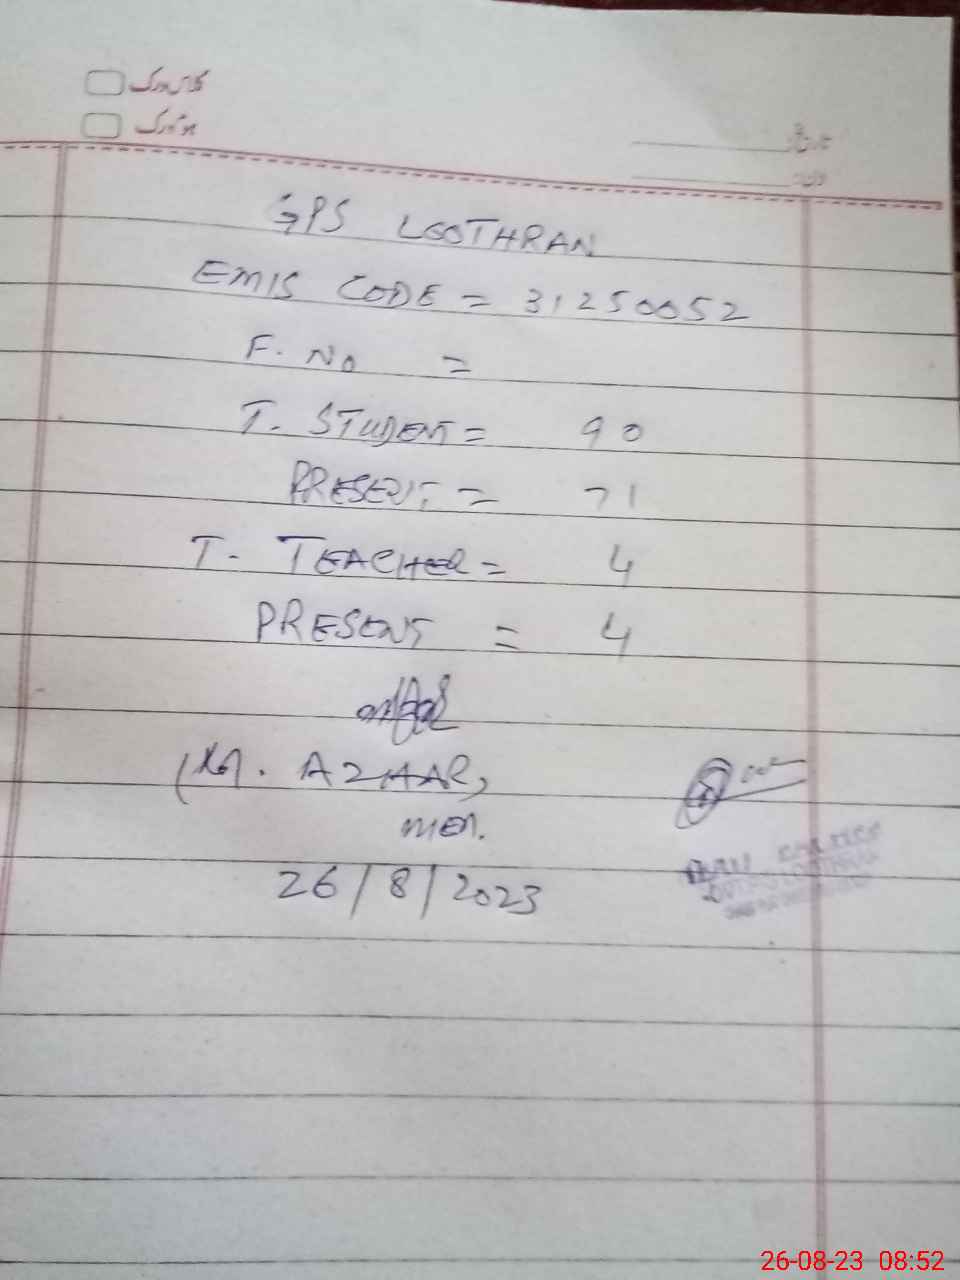 کلاس ورک
ہوم ورک
تاریخ:
دن:
GPS LOOTHRAN
EMIS CODE = 31250052
F. No =
T. STUDENT = 90
PRESENT = 71
T. TEACHER = 4
PRESENT = 4
(M. AZHAR)
MEA.
26/8/2023
26-08-23 08:52